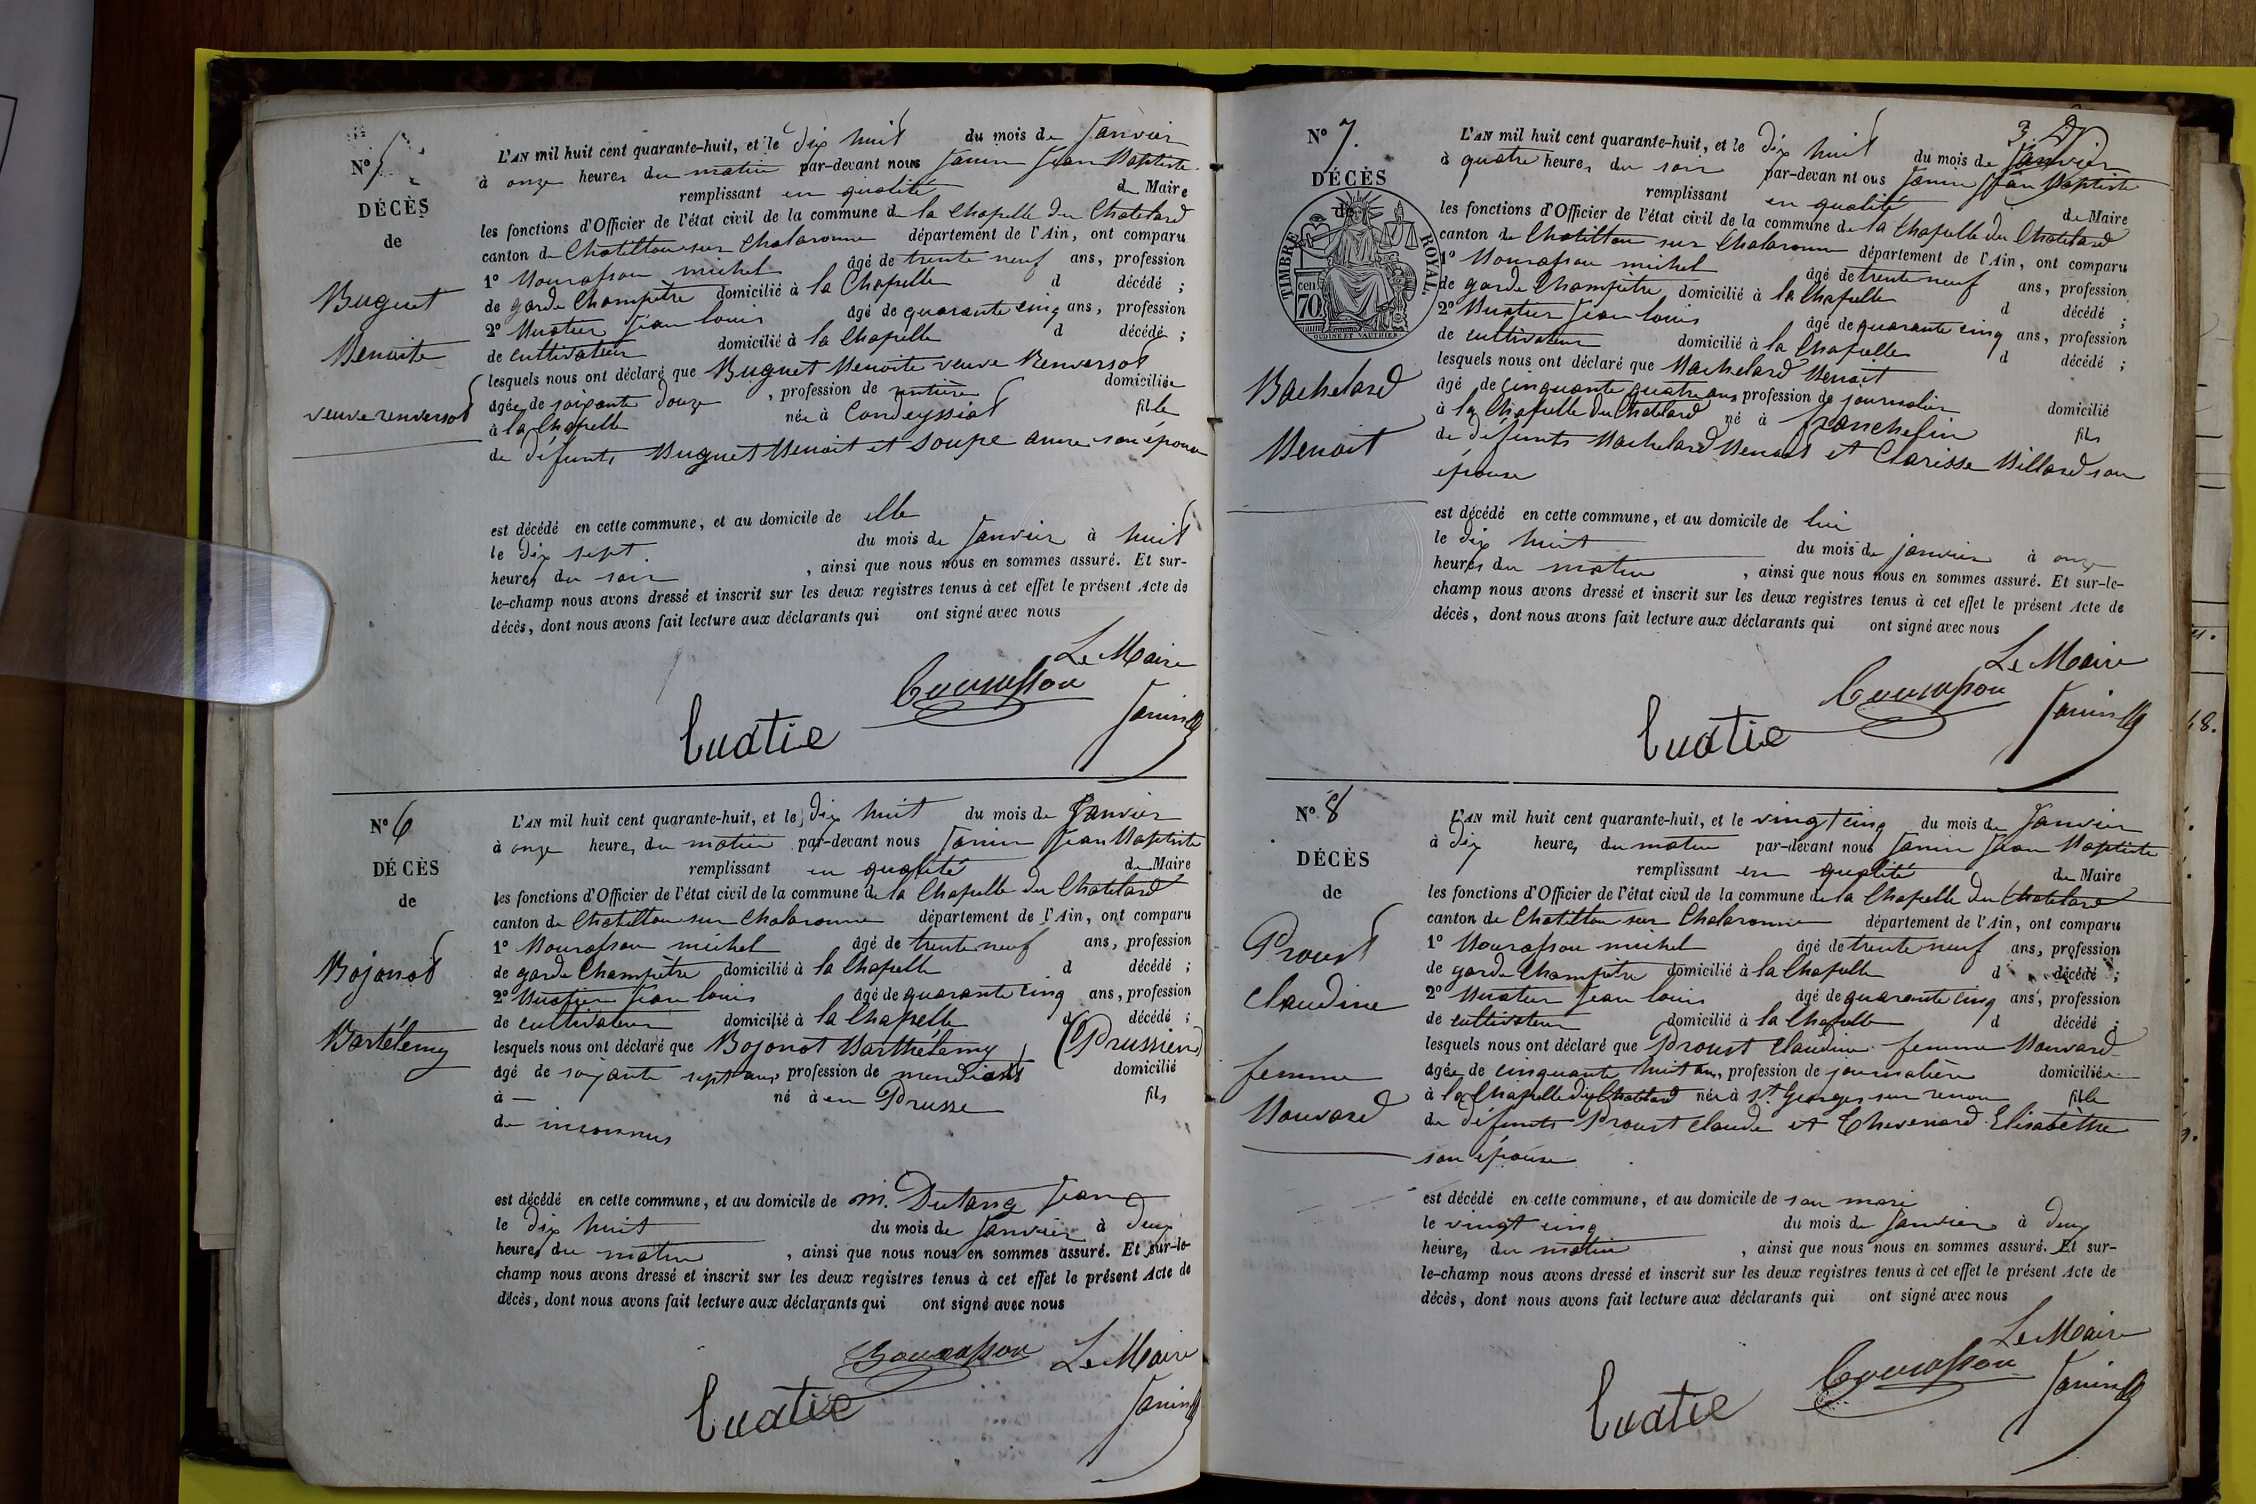 N° 5
DÉCÈS
de
Buguet
Benoite
veuve renversot
L'AN mil huit cent quarante-huit, et le dix huit du mois de Janvier
à onze heures du matin par-devant nous Janin Jean Baptiste
remplissant en qualité de Maire
les fonctions d'Officier de l'état civil de la commune de la Chapelle du Chatelard
canton de Chatillon sur Chalaronne département de l'Ain, ont comparu
1° Bourasson michel âgé de trente neuf ans, profession
de garde Champêtre domicilié à la Chapelle d décédé ;
2° Buatier Jean louis âgé de quarante cinq ans, profession
de cultivateur domicilié à la Chapelle d décédé ;
lesquels nous ont déclaré que Buguet Benoite veuve Renversot
âgée de soixante douze , profession de rentière domiciliée
à la Chapelle née à Condeyssiat fille
de défunts Buguet Benoit et Soupe anne son épouse
est décédé en cette commune, et au domicile de elle
le dix sept du mois de Janvier à huit
heures du soir , ainsi que nous nous en sommes assuré. Et sur-
le-champ nous avons dressé et inscrit sur les deux registres tenus à cet effet le présent Acte de
décès, dont nous avons fait lecture aux déclarants qui ont signé avec nous
Le Maire
Bourasson
Buatie
Janin
N° 6
DÉCÈS
de
Bojonot
Bartélemy
L'AN mil huit cent quarante-huit, et le dix huit du mois de Janvier
à onze heures du matin par-devant nous Janin Jean Baptiste
remplissant en qualité de Maire
les fonctions d'Officier de l'état civil de la commune de la Chapelle du Chatelard
canton de Chatillon sur Chalaronne département de l'Ain, ont comparu
1° Bourasson michel âgé de trente neuf ans, profession
de garde Champêtre domicilié à la Chapelle d décédé ;
2° Buatier Jean louis âgé de quarante cinq ans, profession
de cultivateur domicilié à la Chapelle d décédé ;
lesquels nous ont déclaré que Bojonot Barthélemy (Prussien)
âgé de soixante sept ans, profession de mendiant domicilié
à — né à en Prusse fils
de inconnus
est décédé en cette commune, et au domicile de m. Dutang Jean
le dix huit du mois de Janvier à deux
heures du matin , ainsi que nous nous en sommes assuré. Et sur-le-
champ nous avons dressé et inscrit sur les deux registres tenus à cet effet le présent Acte de
décès, dont nous avons fait lecture aux déclarants qui ont signé avec nous
Bourasson Le Maire
Buatie
Janin
3.
N° 7.
DÉCÈS
de
TIMBRE ROYAL.
70
cen
OUDINE ET VAUTHIER
Bachelard
Benoit
L'AN mil huit cent quarante-huit, et le dix huit du mois de Janvier
à quatre heures du soir par-devan nt ous Janin Jean Baptiste
remplissant en qualité de Maire
les fonctions d'Officier de l'état civil de la commune de la Chapelle du Chatelard
canton de Chatillon sur Chalaronne département de l'Ain, ont comparu
1° Bourasson michel âgé de trente neuf ans, profession
de garde Champêtre domicilié à la Chapelle d décédé ;
2° Buatier Jean louis âgé de quarante cinq ans, profession
de cultivateur domicilié à la Chapelle d décédé ;
lesquels nous ont déclaré que Bachelard Benoit
âgé de cinquante quatre ans, profession de journalier domicilié
à la Chapelle du Chatelard né à franchelin fils
de défunts Bachelard Benoit et Clarisse Billard son
épouse
est décédé en cette commune, et au domicile de lui
le dix huit du mois de janvier à onze
heures du matin , ainsi que nous nous en sommes assuré. Et sur-le-
champ nous avons dressé et inscrit sur les deux registres tenus à cet effet le présent Acte de
décès, dont nous avons fait lecture aux déclarants qui ont signé avec nous
Le Maire
Bourasson
Buatie
Janin
N° 8
DÉCÈS
de
Proust
Claudine
femme
Bouvard
L'AN mil huit cent quarante-huit, et le vingt cinq du mois de Janvier
à dix heures du matin par-devant nous Janin Jean Baptiste
remplissant en qualité de Maire
les fonctions d'Officier de l'état civil de la commune de la Chapelle du Chatelard
canton de Chatillon sur Chalaronne département de l'Ain, ont comparu
1° Bourasson michel âgé de trente neuf ans, profession
de garde Champêtre domicilié à la Chapelle d décédé ;
2° Buatier Jean louis âgé de quarante cinq ans, profession
de cultivateur domicilié à la Chapelle d décédé ;
lesquels nous ont déclaré que Proust Claudine femme Bouvard
âgée de cinquante huit ans, profession de journalière domiciliée
à la Chapelle du Chatelard née à St Georges sur renon fille
de défunts Proust Claude et Thevenard Elisabethe
son épouse
est décédé en cette commune, et au domicile de son mari
le vingt cinq du mois de Janvier à deux
heures du matin , ainsi que nous nous en sommes assuré. Et sur-
le-champ nous avons dressé et inscrit sur les deux registres tenus à cet effet le présent Acte de
décès, dont nous avons fait lecture aux déclarants qui ont signé avec nous
Le Maire
Bourasson
Buatie
Janin